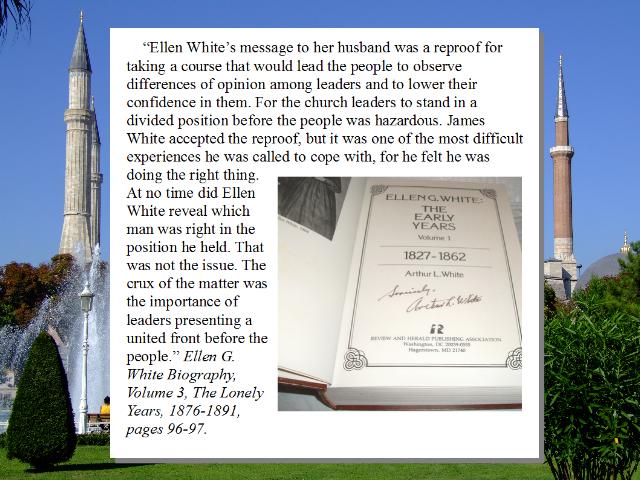 “Ellen White’s message to her husband was a reproof for
taking a course that would lead the people to observe
differences of opinion among leaders and to lower their
confidence in them. For the church leaders to stand in a
divided position before the people was hazardous. James
White accepted the reproof, but it was one of the most difficult
experiences he was called to cope with, for he felt he was
doing the right thing.
At no time did Ellen
White reveal which
man was right in the
position he held. That
was not the issue. The
crux of the matter was
the importance of
leaders presenting a
united front before the
people.” Ellen G.
White Biography,
Volume 3, The Lonely
Years, 1876-1891,
pages 96-97.
ELLEN G. WHITE:
THE
EARLY
YEARS
Volume 1
1827-1862
Arthur L. White
Sincerely,
Arthur L. White
REVIEW AND HERALD PUBLISHING ASSOCIATION
Washington, DC 20039-0555
Hagerstown, MD 21740